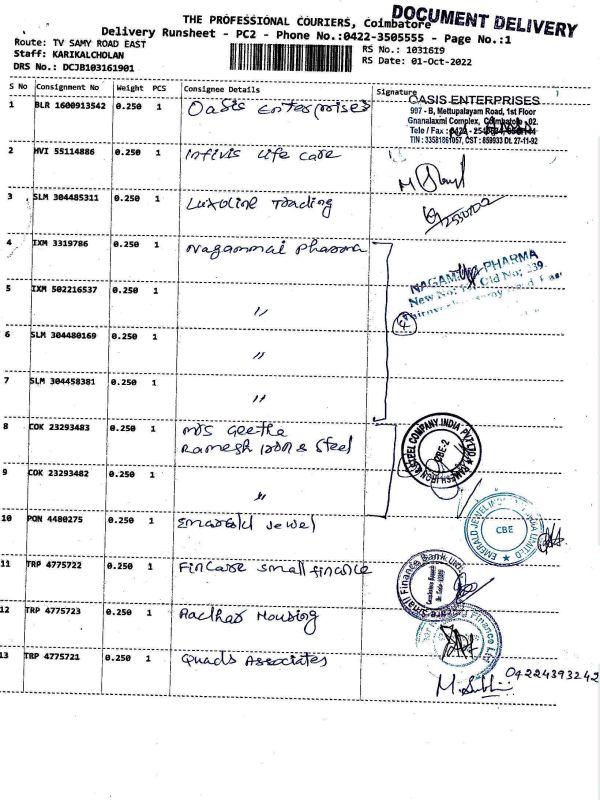 DOCUMENT DELIVERY
THE PROFESSIONAL COURIERS, Coimbatore
Delivery Runsheet - PC2 - Phone No.:0422-3505555 - Page No.:1
Route: TV SAMY ROAD EAST
RS No.: 1031619
Staff: KARIKALCHOLAN
RS Date: 01-Oct-2022
DRS No.: DCJB103161901
S No Consignment No Weight PCS Consignee Details Signature
1 BLR 1600913542 0.250 1 Oasis Enterprises
OASIS ENTERPRISES
907 - B, Mettupalayam Road, 1st Floor
Gnanalaxmi Complex, Coimbatore - 02.
Tele / Fax : 0422 -
TIN : 33581861057, CST : 859933 Dt. 27-11-92
2 HVI 55114886 0.250 1 Infivis Life care
3 SLM 304485311 0.250 1 Luxoline Trading
4 IXM 3319786 0.250 1 Nagammai Pharma
NAGAMMAI PHARMA
New No: Old No: 239
5 IXM 502216537 0.250 1 "
4
6 SLM 304480169 0.250 1 "
7 SLM 304458381 0.250 1 "
8 COK 23293483 0.250 1 M/s Geetha
Ramesh Iron & Steel
RAMESH IRON & STEEL COMPANY INDIA PVT LTD
CBE-2
9 COK 23293482 0.250 1 "
10 PON 4480275 0.250 1 Emarald Jewel
EMERALD JEWEL INDUSTRY INDIA LIMITED
CBE
11 TRP 4775722 0.250 1 Fincare small finance
Fincare Small Finance Bank Ltd
12 TRP 4775723 0.250 1 Aadhar Housing
Finance Ltd
13 TRP 4775721 0.250 1 Quads Associates
04224393242